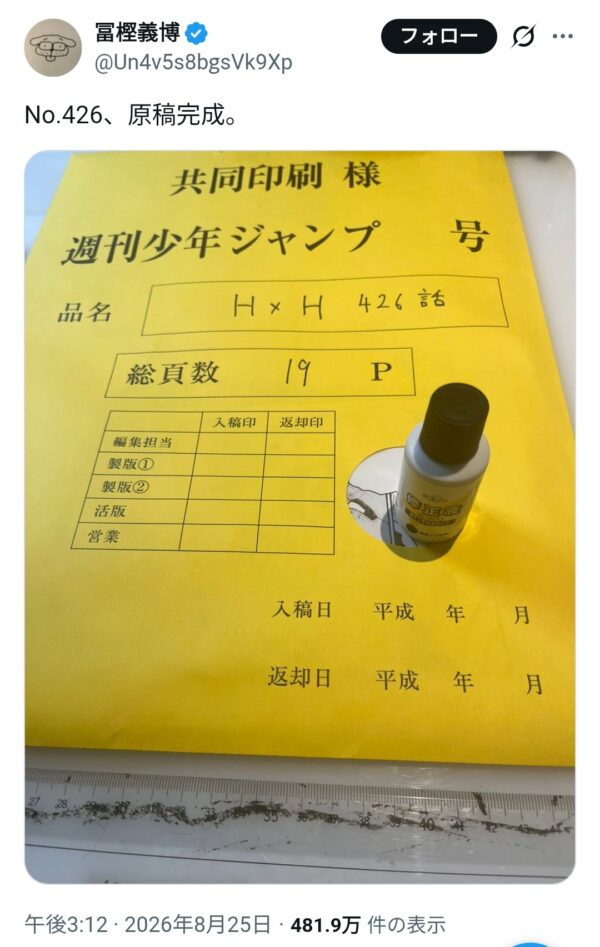 冨樫義博
フォロー
@Un4v5s8bgsVk9Xp
No.426、原稿完成。
共同印刷 様
週刊少年ジャンプ 号
品名 H×H 426話
総頁数 19 P
入稿印 返却印
編集担当
製版①
製版②
活版
営業
修正液
入稿日 平成 年 月
返却日 平成 年 月
27 28 33 35 38 39 40 41 42 43
午後3:12 · 2026年8月25日 · 481.9万 件の表示